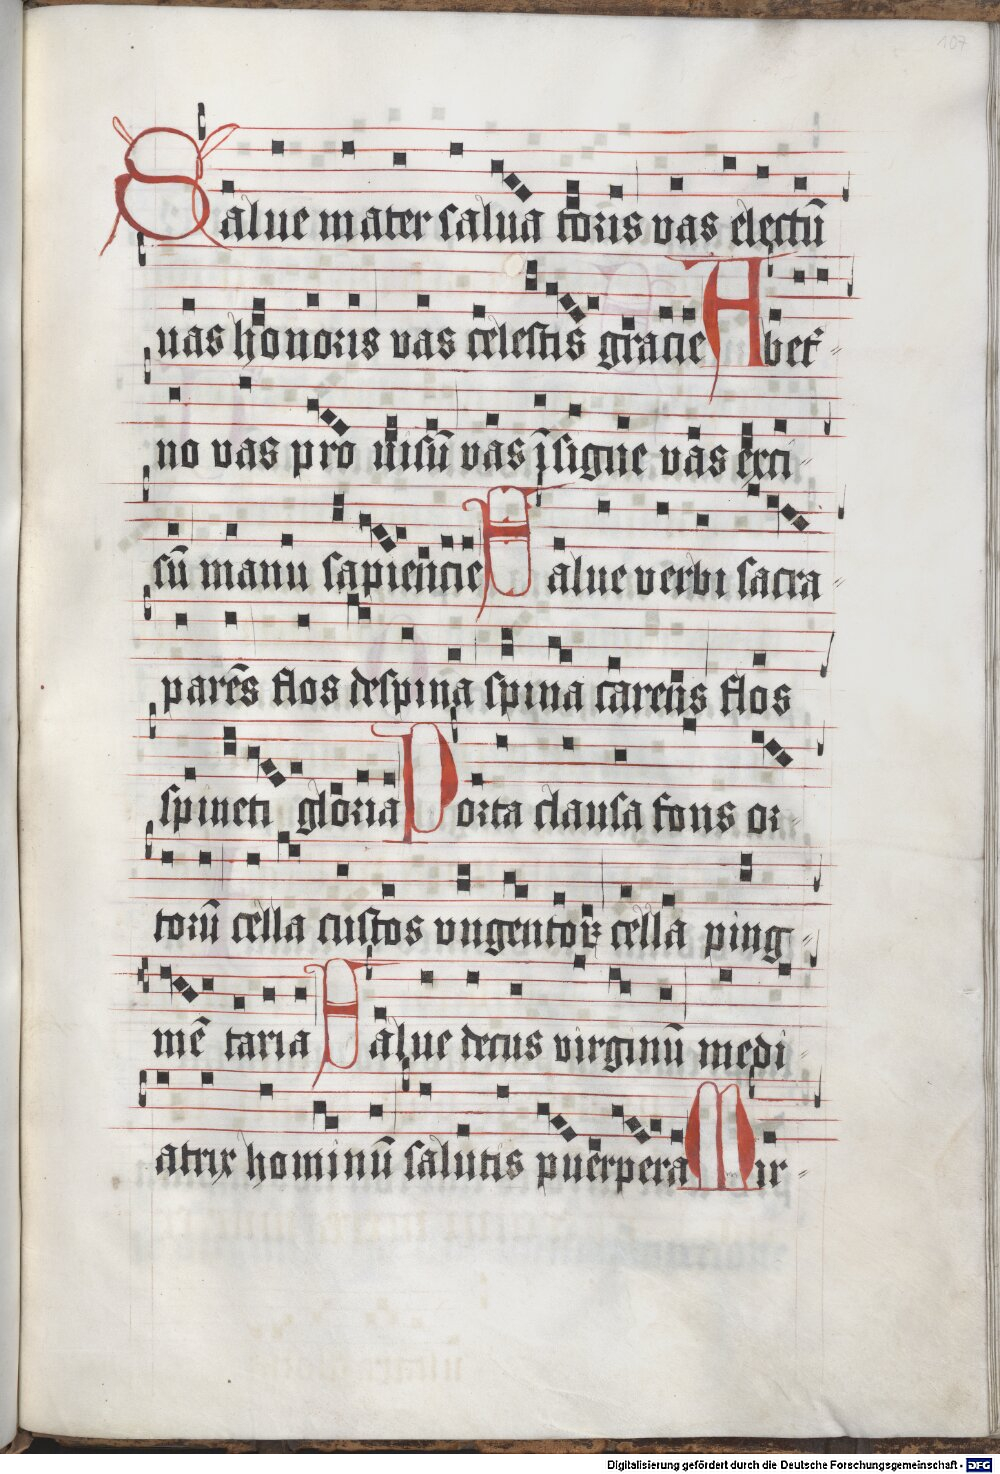 107
Salue mater salua toris vas electū
uas honoris vas celestis gracie Abet
no vas pro uisū vas īsigne vas exci
sū manu sapiencie Salue verbi sacra
parēs flos despina spina carens flos
spineti gloria Porta clausa fons or
torū cella custos vngentoꝝ cella ping
mē taria Salue decus virginū medi
atrix hominū salutis puerpera Mir
Digitalisierung gefördert durch die Deutsche Forschungsgemeinschaft - DFG